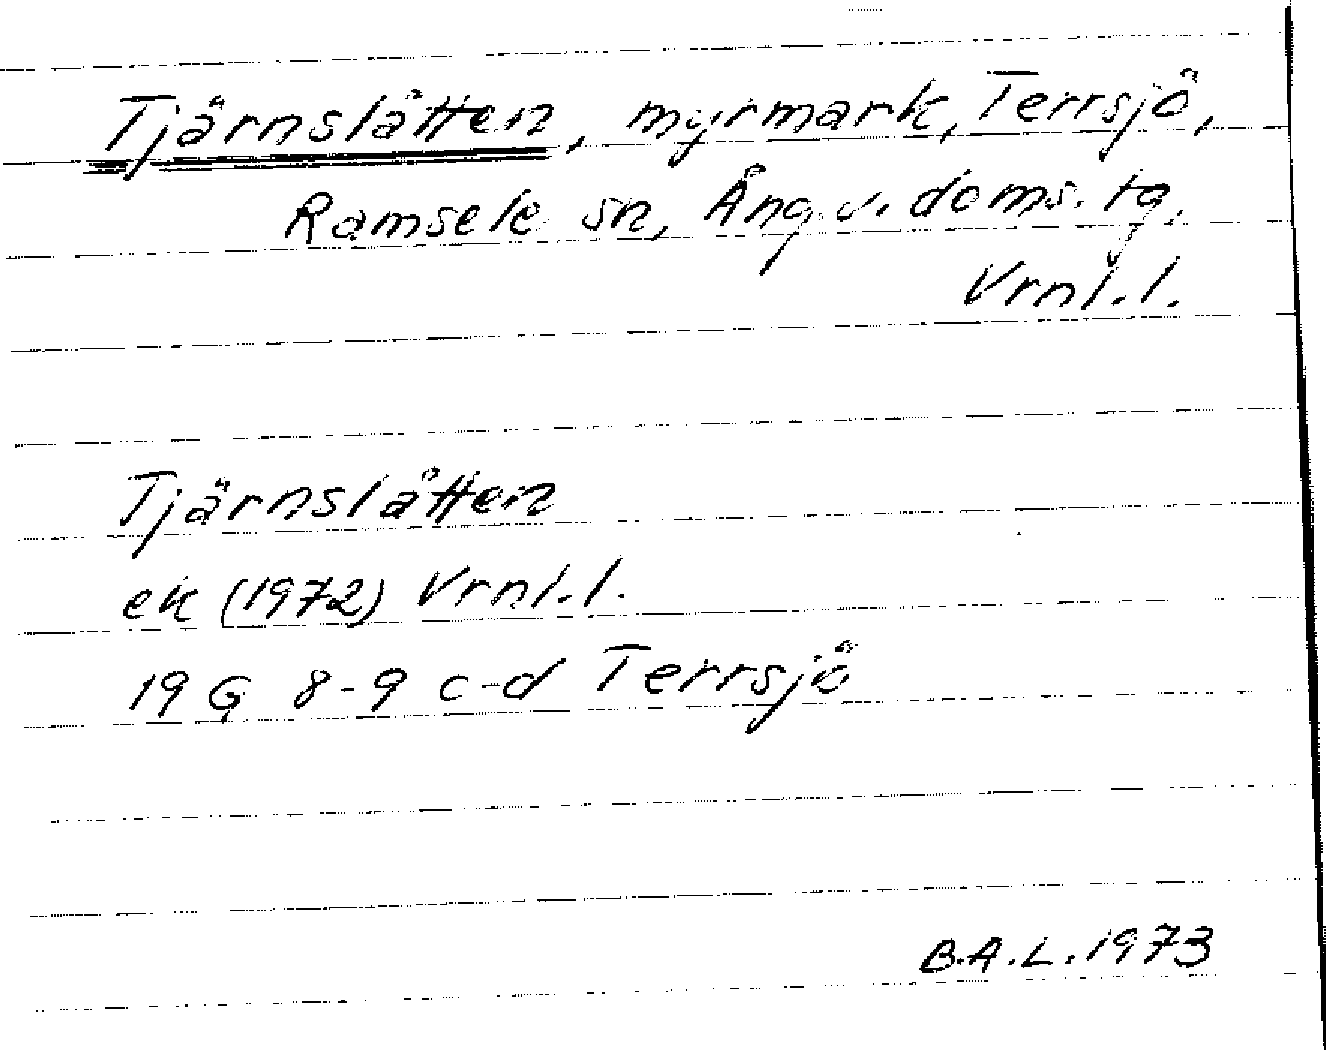 Tjärnslåtten, myrmark, Terrsjö,
Ramsele sn, Ång.v. doms. tg.
Vrnl.l.
Tjärnslåtten
ek (1972) Vrnl.l.
19 G 8-9 c-d Terrsjö
B.A.L. 1973